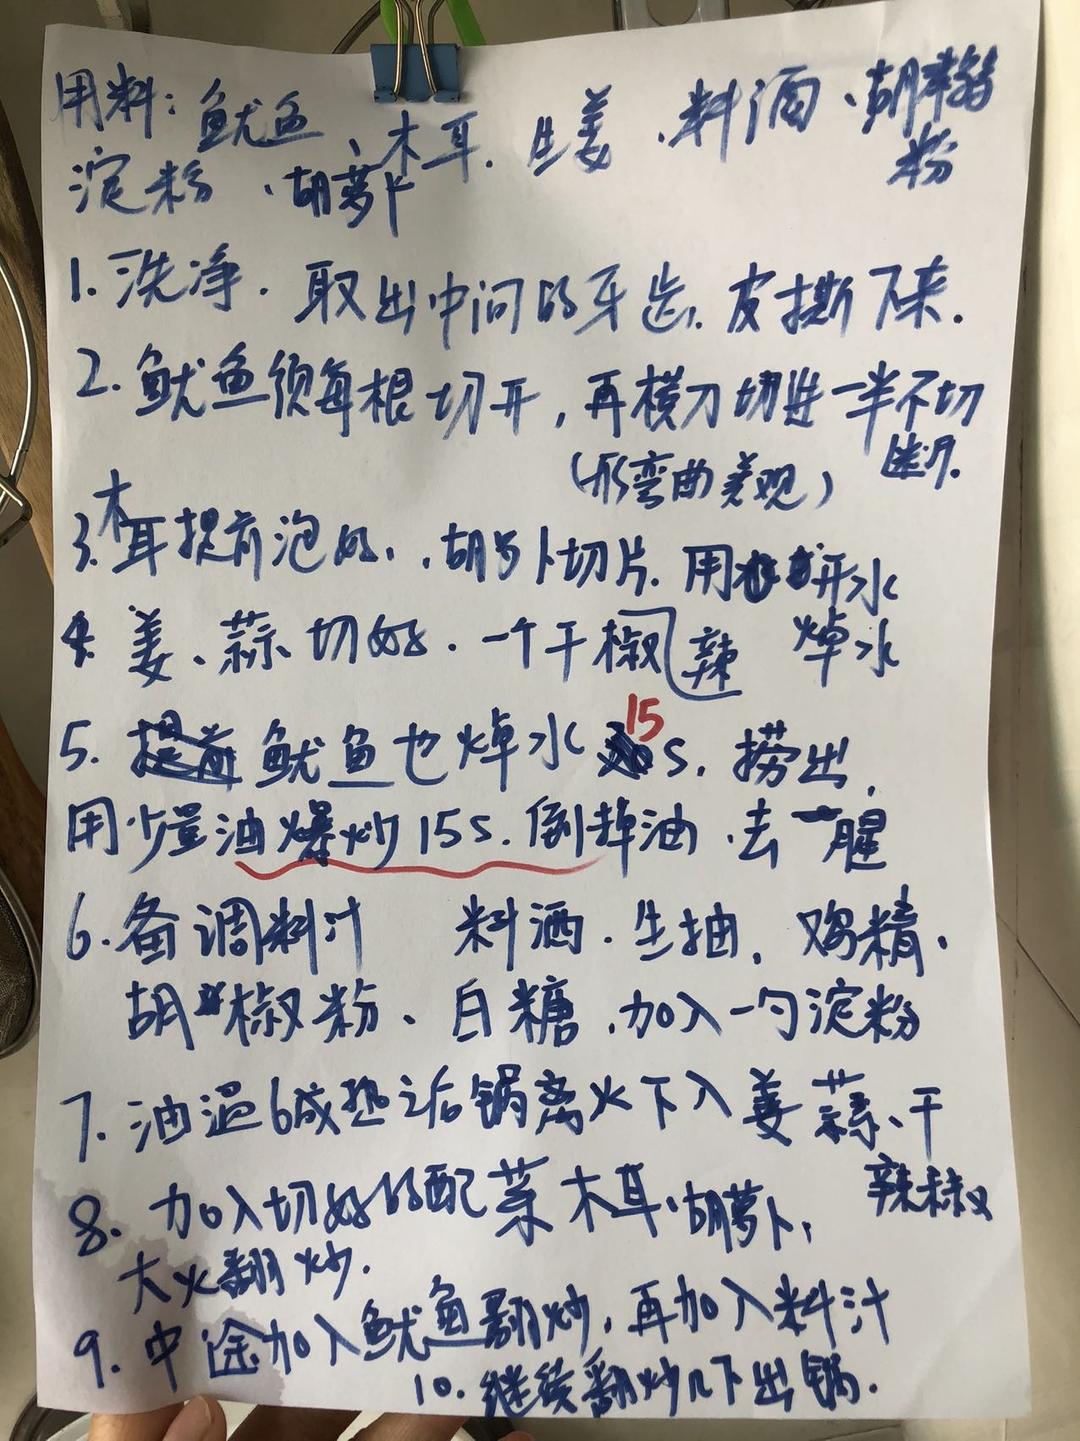 用料：鱿鱼、木耳、生姜、料酒、胡椒
粉
淀粉、胡萝卜
1. 洗净. 取出中间的牙齿. 皮撕下来.
2. 鱿鱼须每根切开，再横刀切进一半不切
断.
(形弯曲美观)
3. 木耳提前泡好，胡萝卜切片. 用开水
焯水
4. 姜、蒜、切好. 一个干辣椒
5. 鱿鱼也焯水15s. 捞出，
用少量油爆炒15s. 倒掉油、去腥
6. 备调料汁 料酒. 生抽. 鸡精.
胡椒粉、白糖、加入一勺淀粉
7. 油温6成热之后锅离火下入姜蒜、干
辣椒
8. 加入切好的配菜木耳、胡萝卜，
大火翻炒.
9. 中途加入鱿鱼翻炒，再加入料汁
10. 继续翻炒几下出锅.